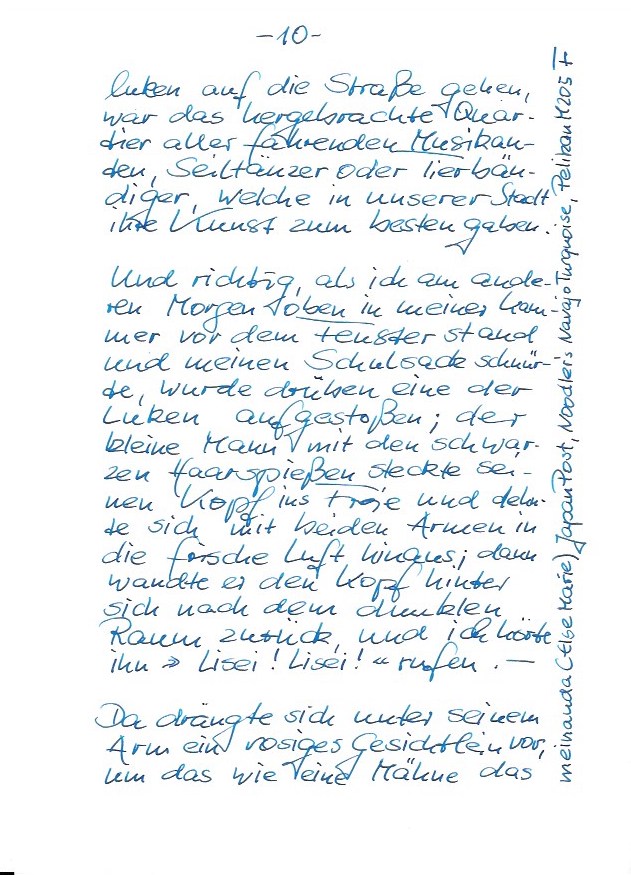 -10-
luken auf die Straße gehen,
war das hergebrachte Quar-
tier aller fahrenden Musikan-
ten, Seiltänzer oder Tierbän-
diger, welche in unserer Stadt
ihre Kunst zum besten gaben.
Und richtig, als ich am ande-
ren Morgen oben in meiner Kam-
mer vor dem Fenster stand
und meinen Schulsack schnür-
te, wurde drüben eine der
Luken aufgestoßen; der
kleine Mann mit den schwar-
zen Haarspießen steckte sei-
nen Kopf ins Freie und dehn-
te sich mit beiden Armen in
die frische Luft hinaus; dann
wandte er den Kopf hinter
sich nach dem dunklen
Raum zurück, und ich hörte
ihn » Lisei! Lisei! « rufen. —
Da drängte sich unter seinem
Arm ein rosiges Gesichtlein vor,
um das wie eine Mähne das
meinanda (Else Marie) JapanPost, Noodlers Navajo Turquoise, Pelikan M205 F